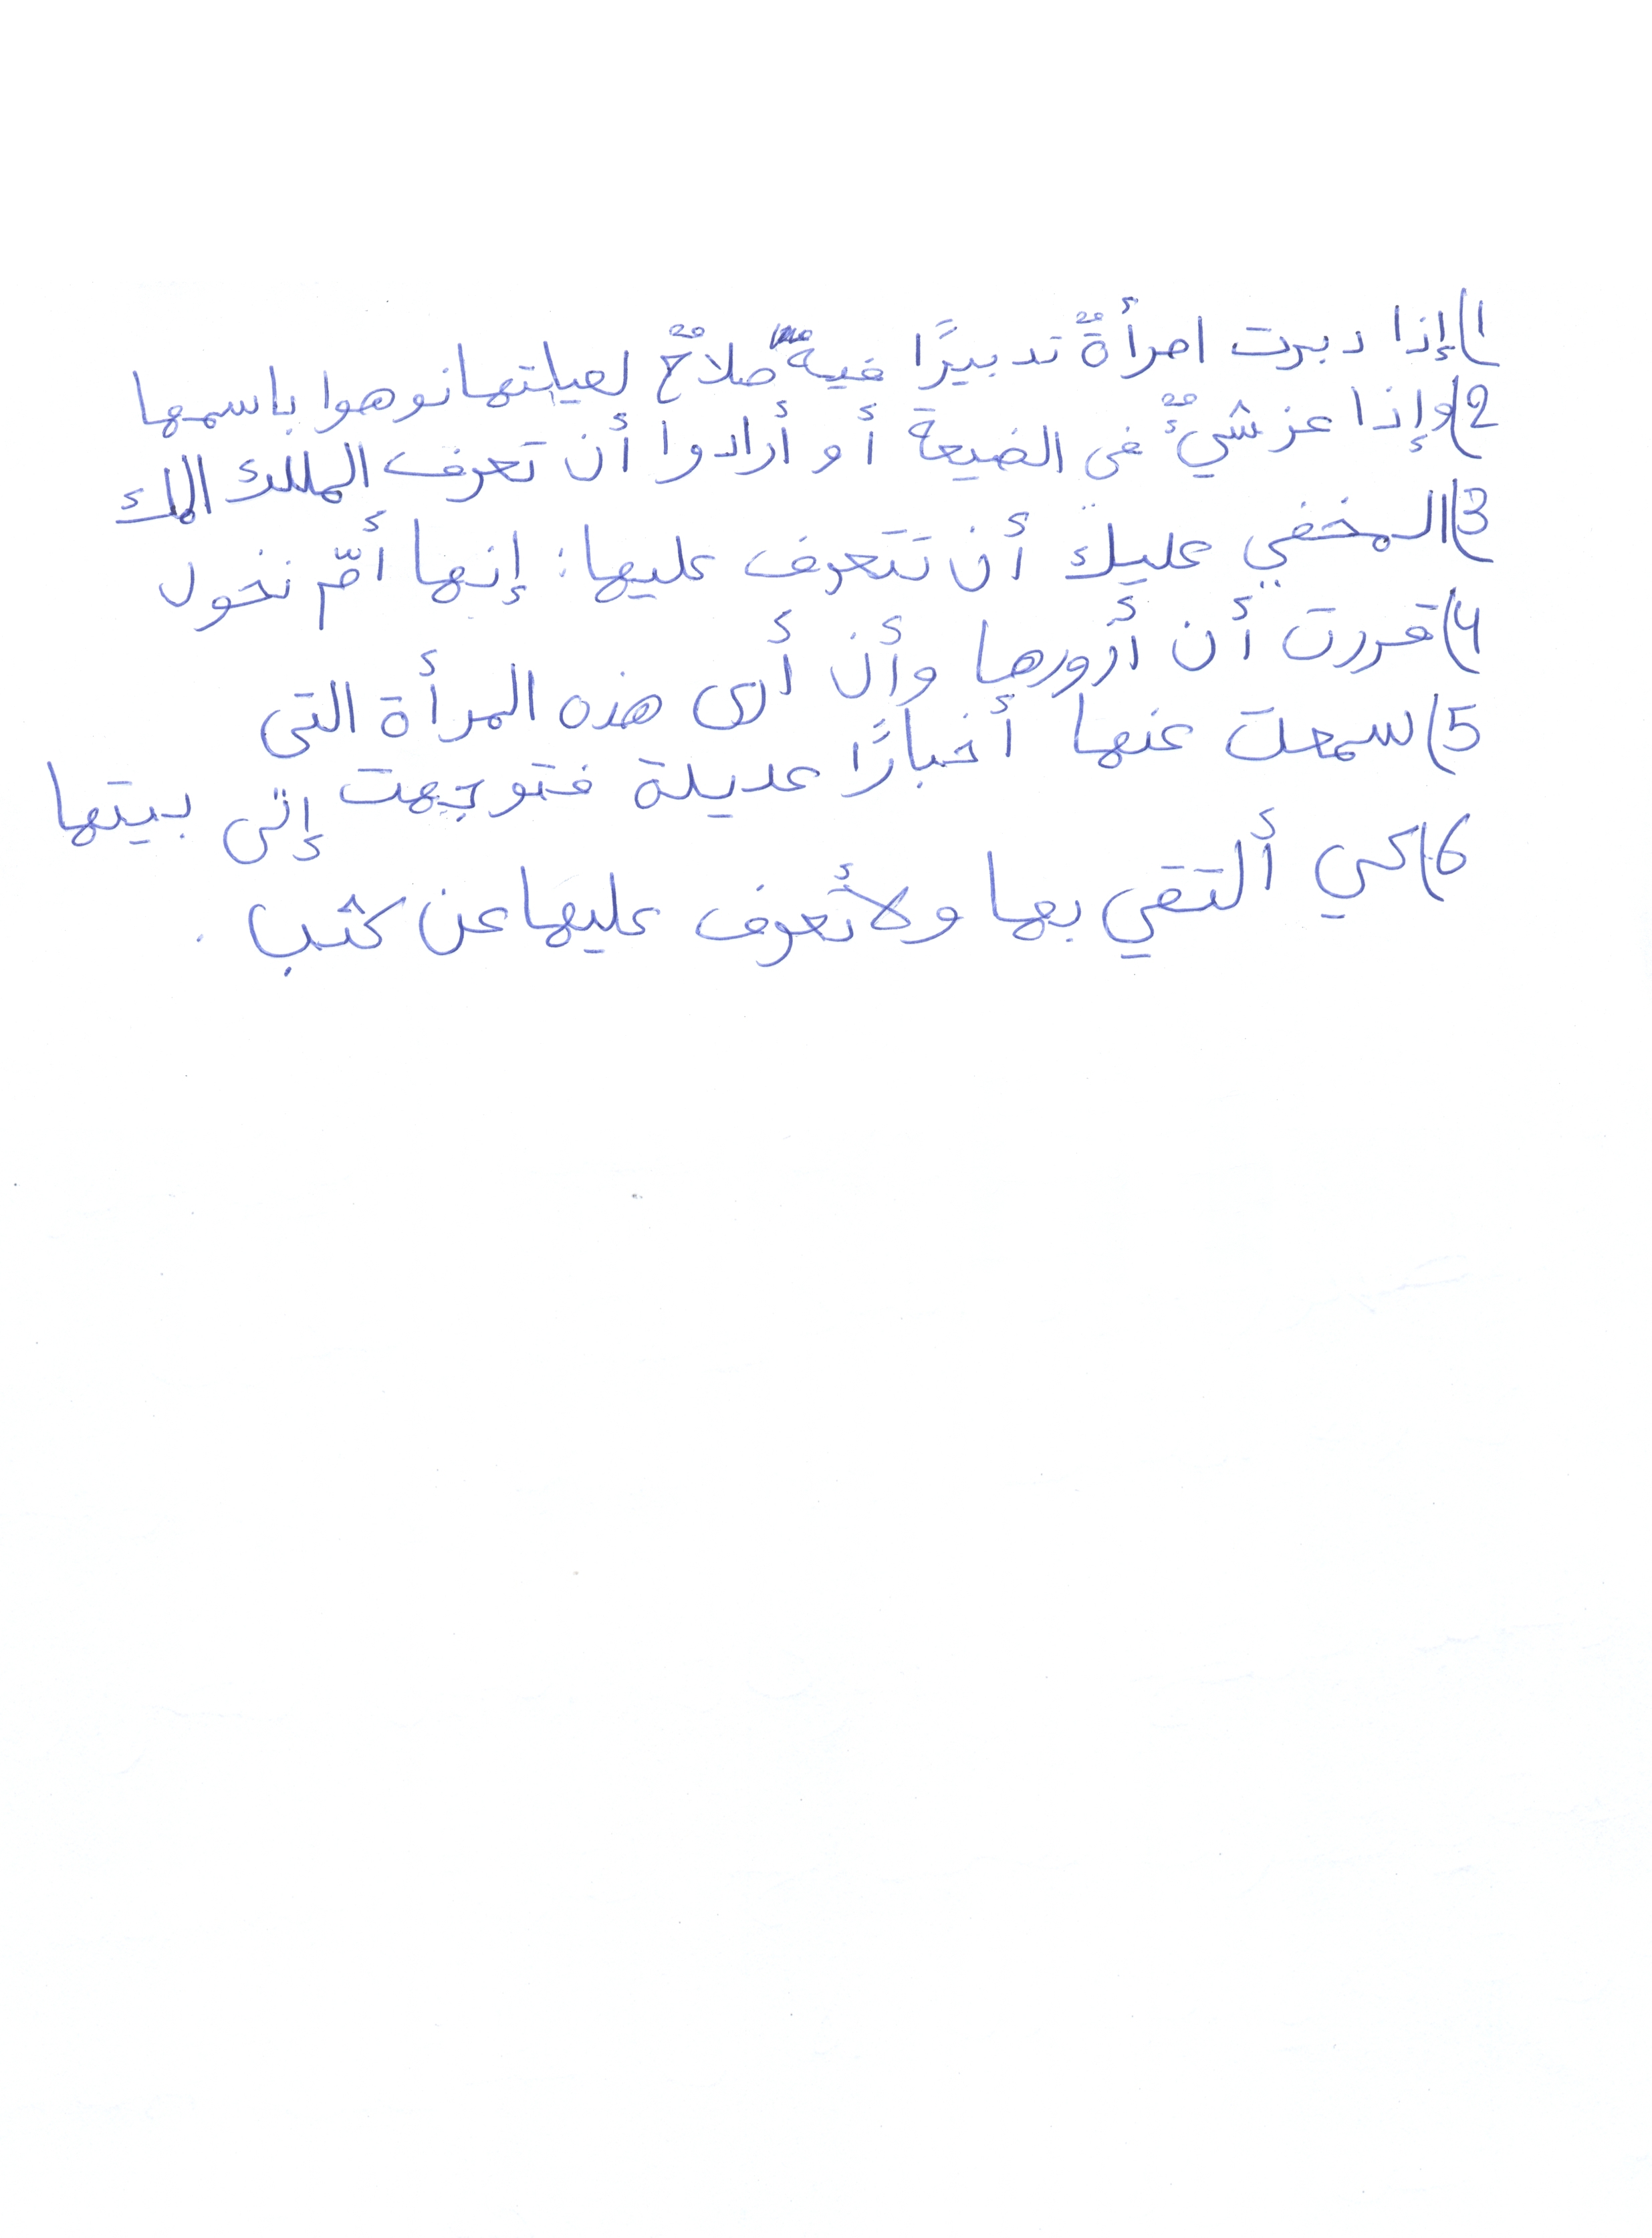 1) إذا دبرت امرأةٌ تدبيرًا فيه صلاحٌ لعيلتها نوهوا باسمها
2) وإذا عز شيءٌ في الضيعة أو أرادوا أن تعرف الملك الملك
3) المخفي عليك أن تتعرف عليها: إنها أمّ نخول
4) قررت أن أزورها وأن أرى هذه المرأة التي
5) سمعت عنها أخبارًا عديلة فتوجهت إلى بيتها
6) كي ألتقي بها ولأتعرف عليها عن كثب.